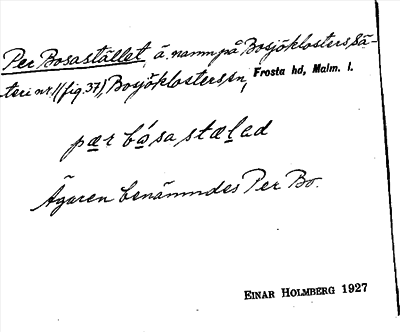 Per Bosastället, ä. namn på Bosjöklosters sä-
teri nr 1 (fig. 37), Bosjöklosters sn, Frosta hd, Malm. l.
pær bo̱sa stælad
Ägaren benämndes Per Bo.
EINAR HOLMBERG 1927